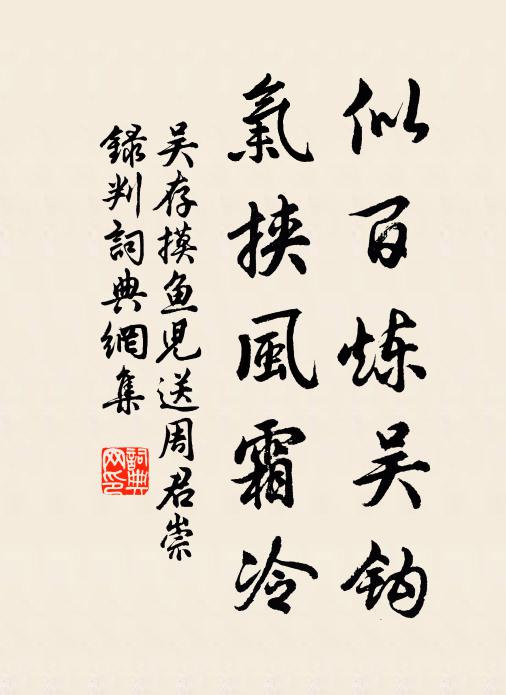 似百炼吴鈎
氣挾風霜冷
吴存摸鱼児送周君崇
録判詞典網集
詞典网印